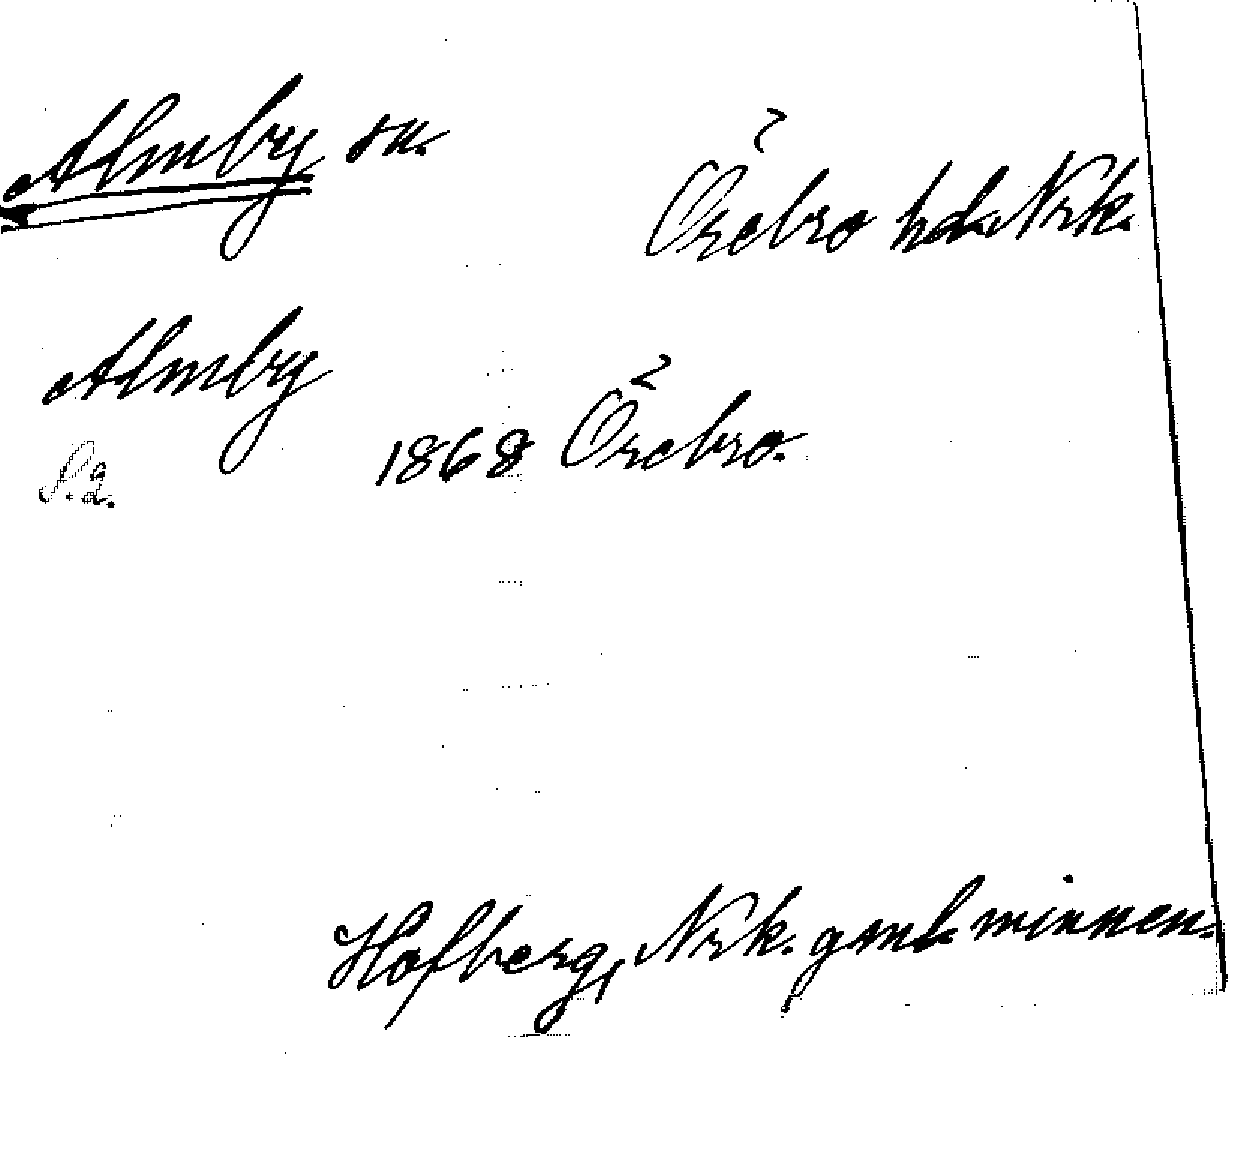 Almby sn.
Örebro hd. Nrk.
Almby
S. 2. 1868 Örebro.
Hofberg, Nrk. gamla minnen.